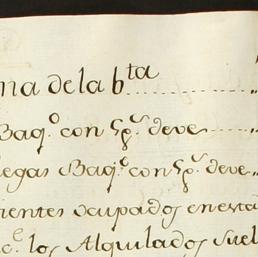 na de la b^ta
Baq.^o con sp.^s deve
legas Baq.^o con sp.^s deve
ientes ocupados en esta
los Alquilados suel